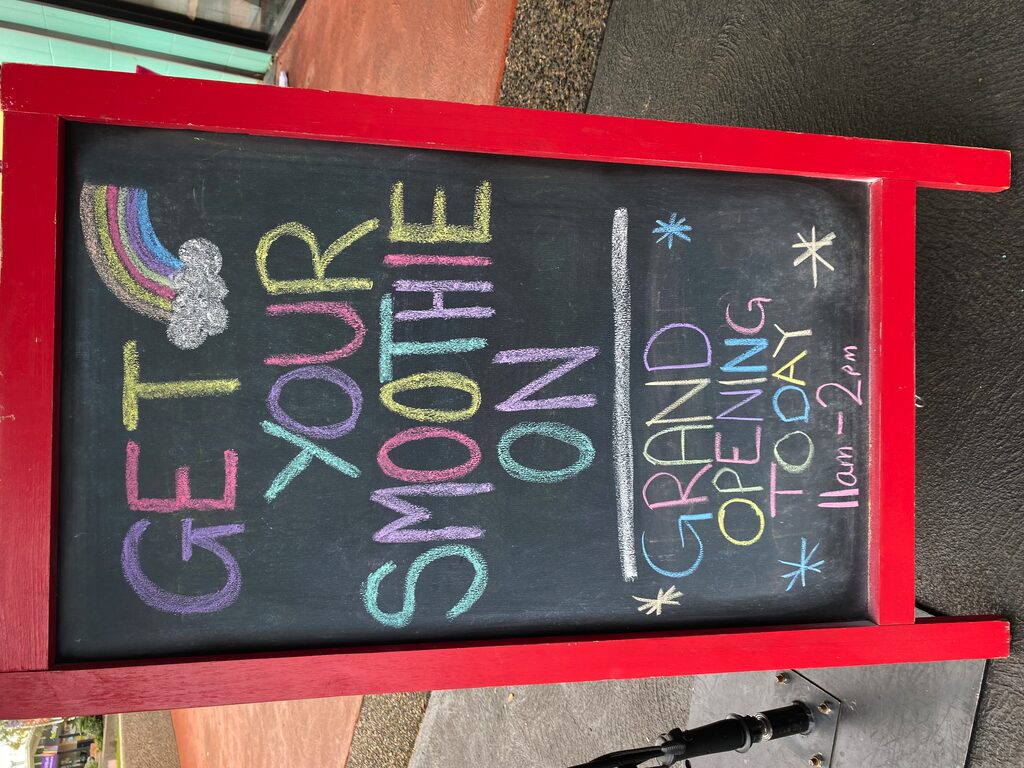 GET
YOUR
SMOOTHIE
ON
GRAND
OPENING
TODAY
11am-2pm